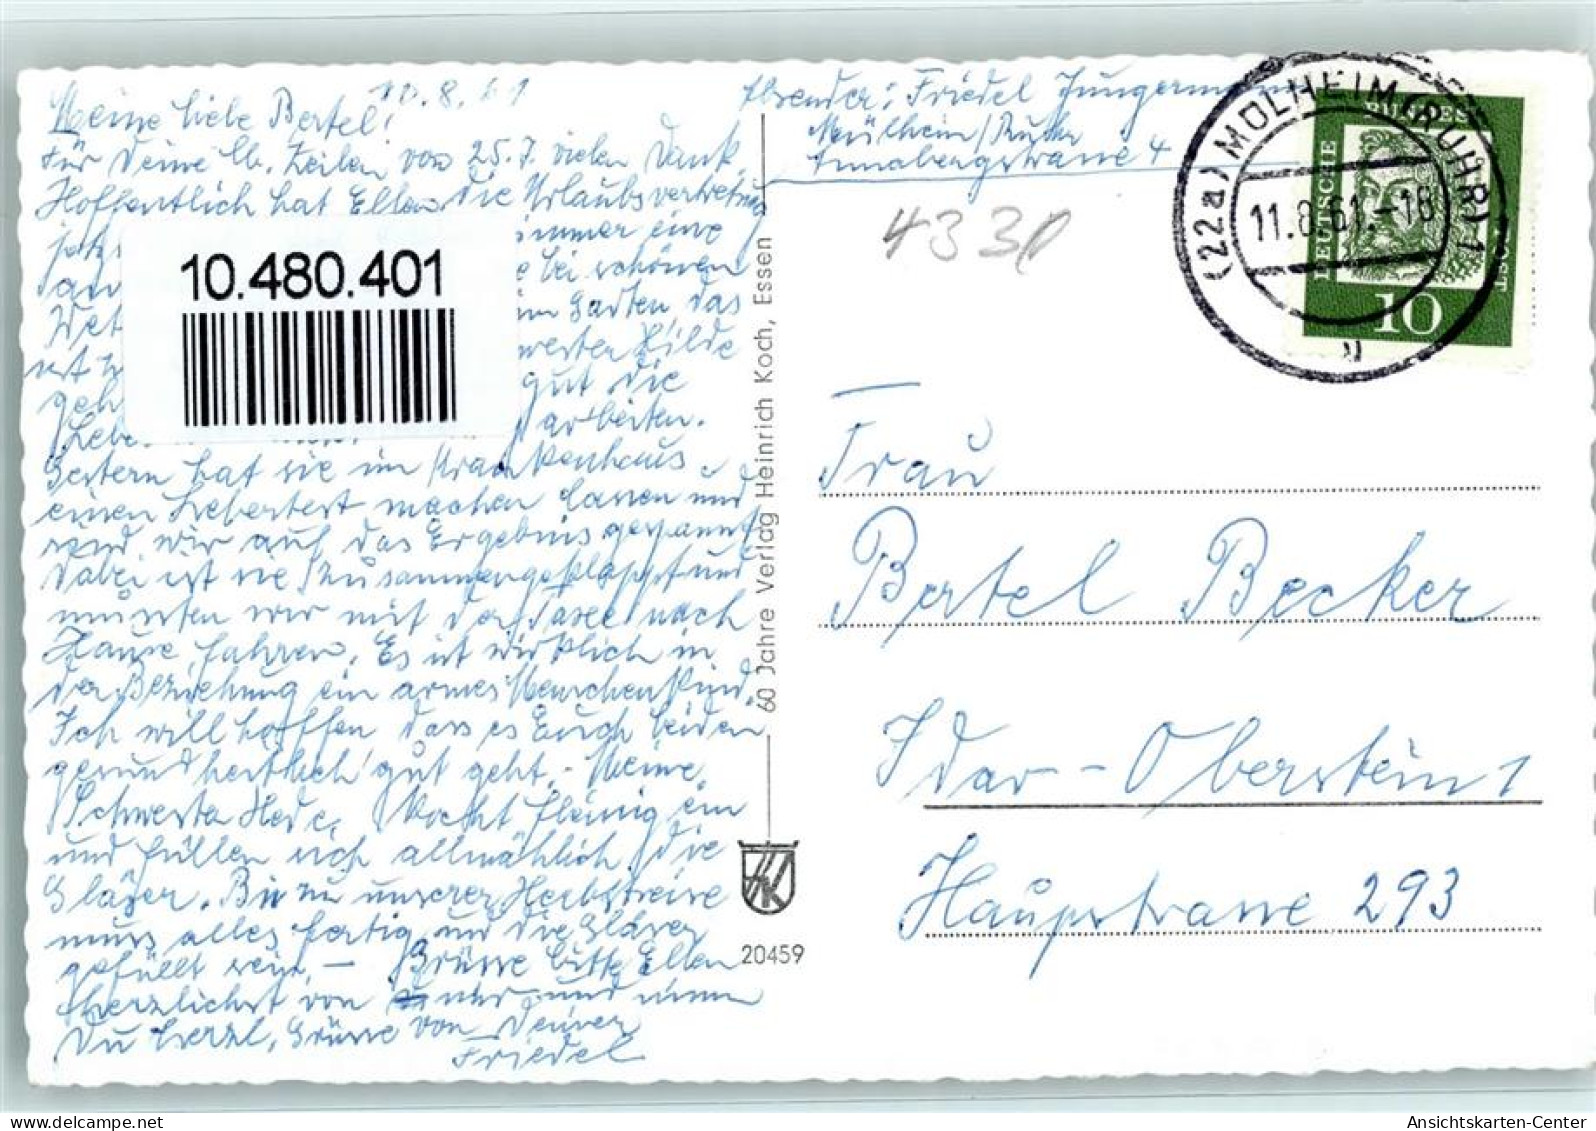 Meine liebe Bertel! 10.8.61
für Deine lb. Zeilen von 25.7. vielen Dank,
Hoffentlich hat Ellen die Urlaubsvertretung
jetzt immer eine
bei schönen
Wet im Garten das
ist wester Hilde
geh gut die
Lebe arbeiten.
Gestern hat sie im Krankenhaus
einen Lebertest machen lassen und
sind wir auf das Ergebnis gespannt
Dabei ist sie zusammengeklappt und
mussten wir mit der Taxe nach
Hause fahren. Es ist wirklich in
der Beziehung ein armes Menschenkind.
Ich will hoffen dass es Euch beiden
gesundheitlich gut geht. - Meine
Schwester Hede, kocht fleissig ein
und füllen sich allmählich die
Gläser. Bis zu unserer Herbstreise
muss alles fertig und die Gläser
gefüllt sein. - Grüsse bitte Ellen
herzlichst von mir und nimm
Du herzl. Grüsse von Deiner
Friedel
10.480.401
60 Jahre Verlag Heinrich Koch, Essen
HK
20459
Absender: Friedel Jungermann
Mülheim/Ruhr
Annabergstrasse 4
4330
(22a) MÜLHEIM (RUHR) 1
11.8.61.-18
u
DEUTSCHE BUNDESPOST
10
Frau
Bertel Becker
Idar-Oberstein 1
Hauptstrasse 293
Ansichtskarten-Center.de
Ansichtskarten-Center